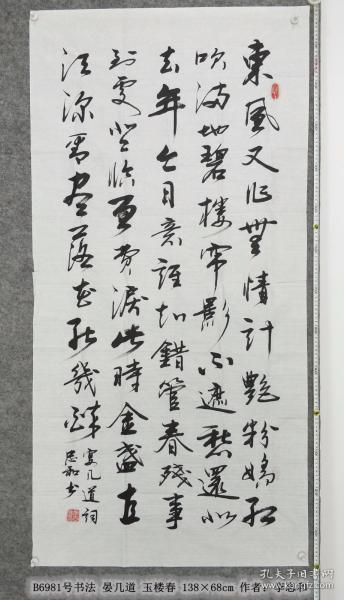 東風又作無情計艷粉嬌紅
吹滿地碧樓帘影不遮愁還似
去年今日意誰知錯管春殘事
到處登臨曾費淚此時金盞直
須深看盡落花能幾醉
晏几道詞
志和书
B6981号书法 晏几道 玉楼春 138×68cm 作者：李志和
孔夫子旧书网